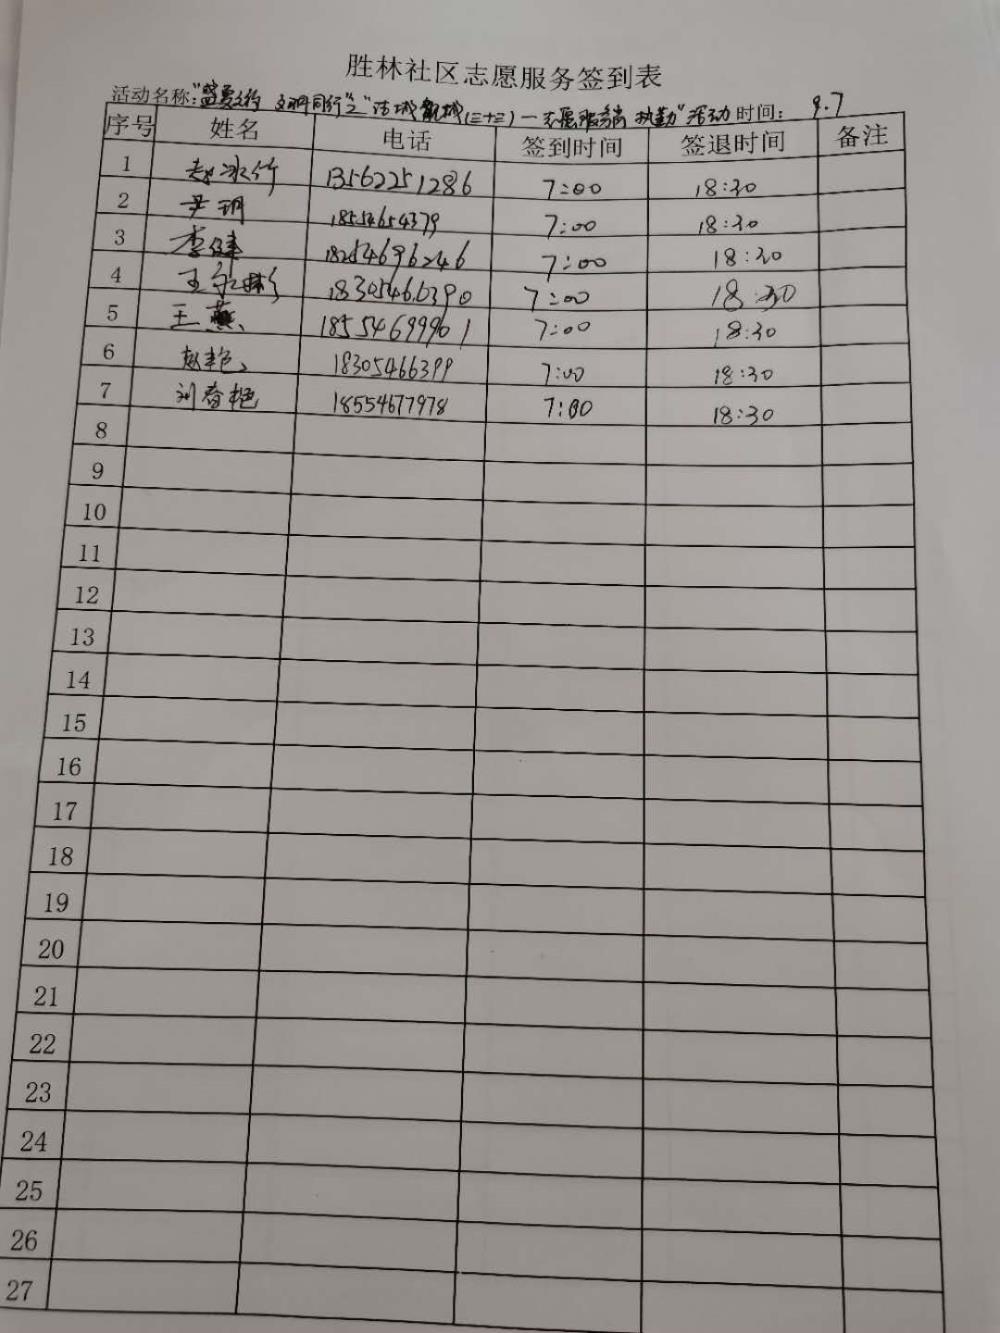 胜林社区志愿服务签到表
活动名称:"盛夏之约 文明同行"之"洁城靓城(三十三)—志愿服务岗执勤"活动 时间: 9.7
序号 姓名 电话 签到时间 签退时间 备注
1 赵冰竹 13562251286 7:00 18:30
2 尹玥 18554654379 7:00 18:30
3 李健 18254696246 7:00 18:30
4 王 18305466390 7:00 18:30
5 王燕 18554699961 7:00 18:30
6 赵艳 18305466399 7:00 18:30
7 刘春艳 18554677978 7:00 18:30
8
9
10
11
12
13
14
15
16
17
18
19
20
21
22
23
24
25
26
27